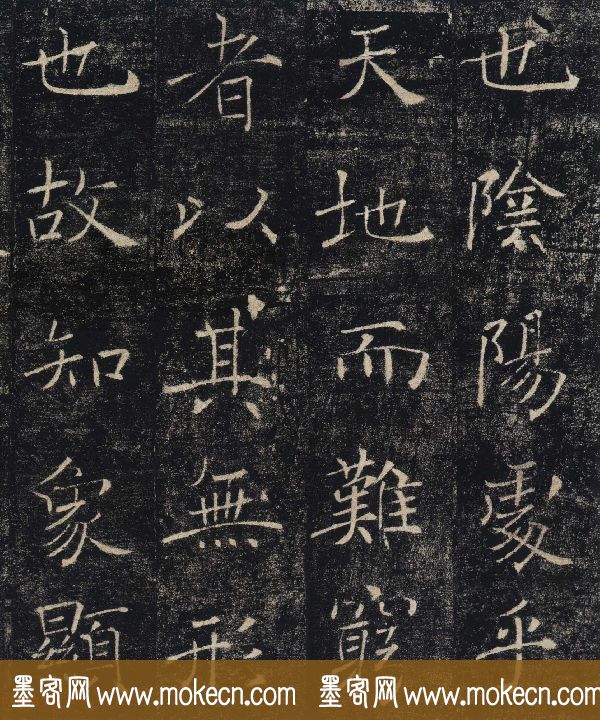 也陰陽處乎
天地而難窮
者以其無形
也故知象顯
墨客网 www.mokecn.com 墨客网 www.mokecn.com